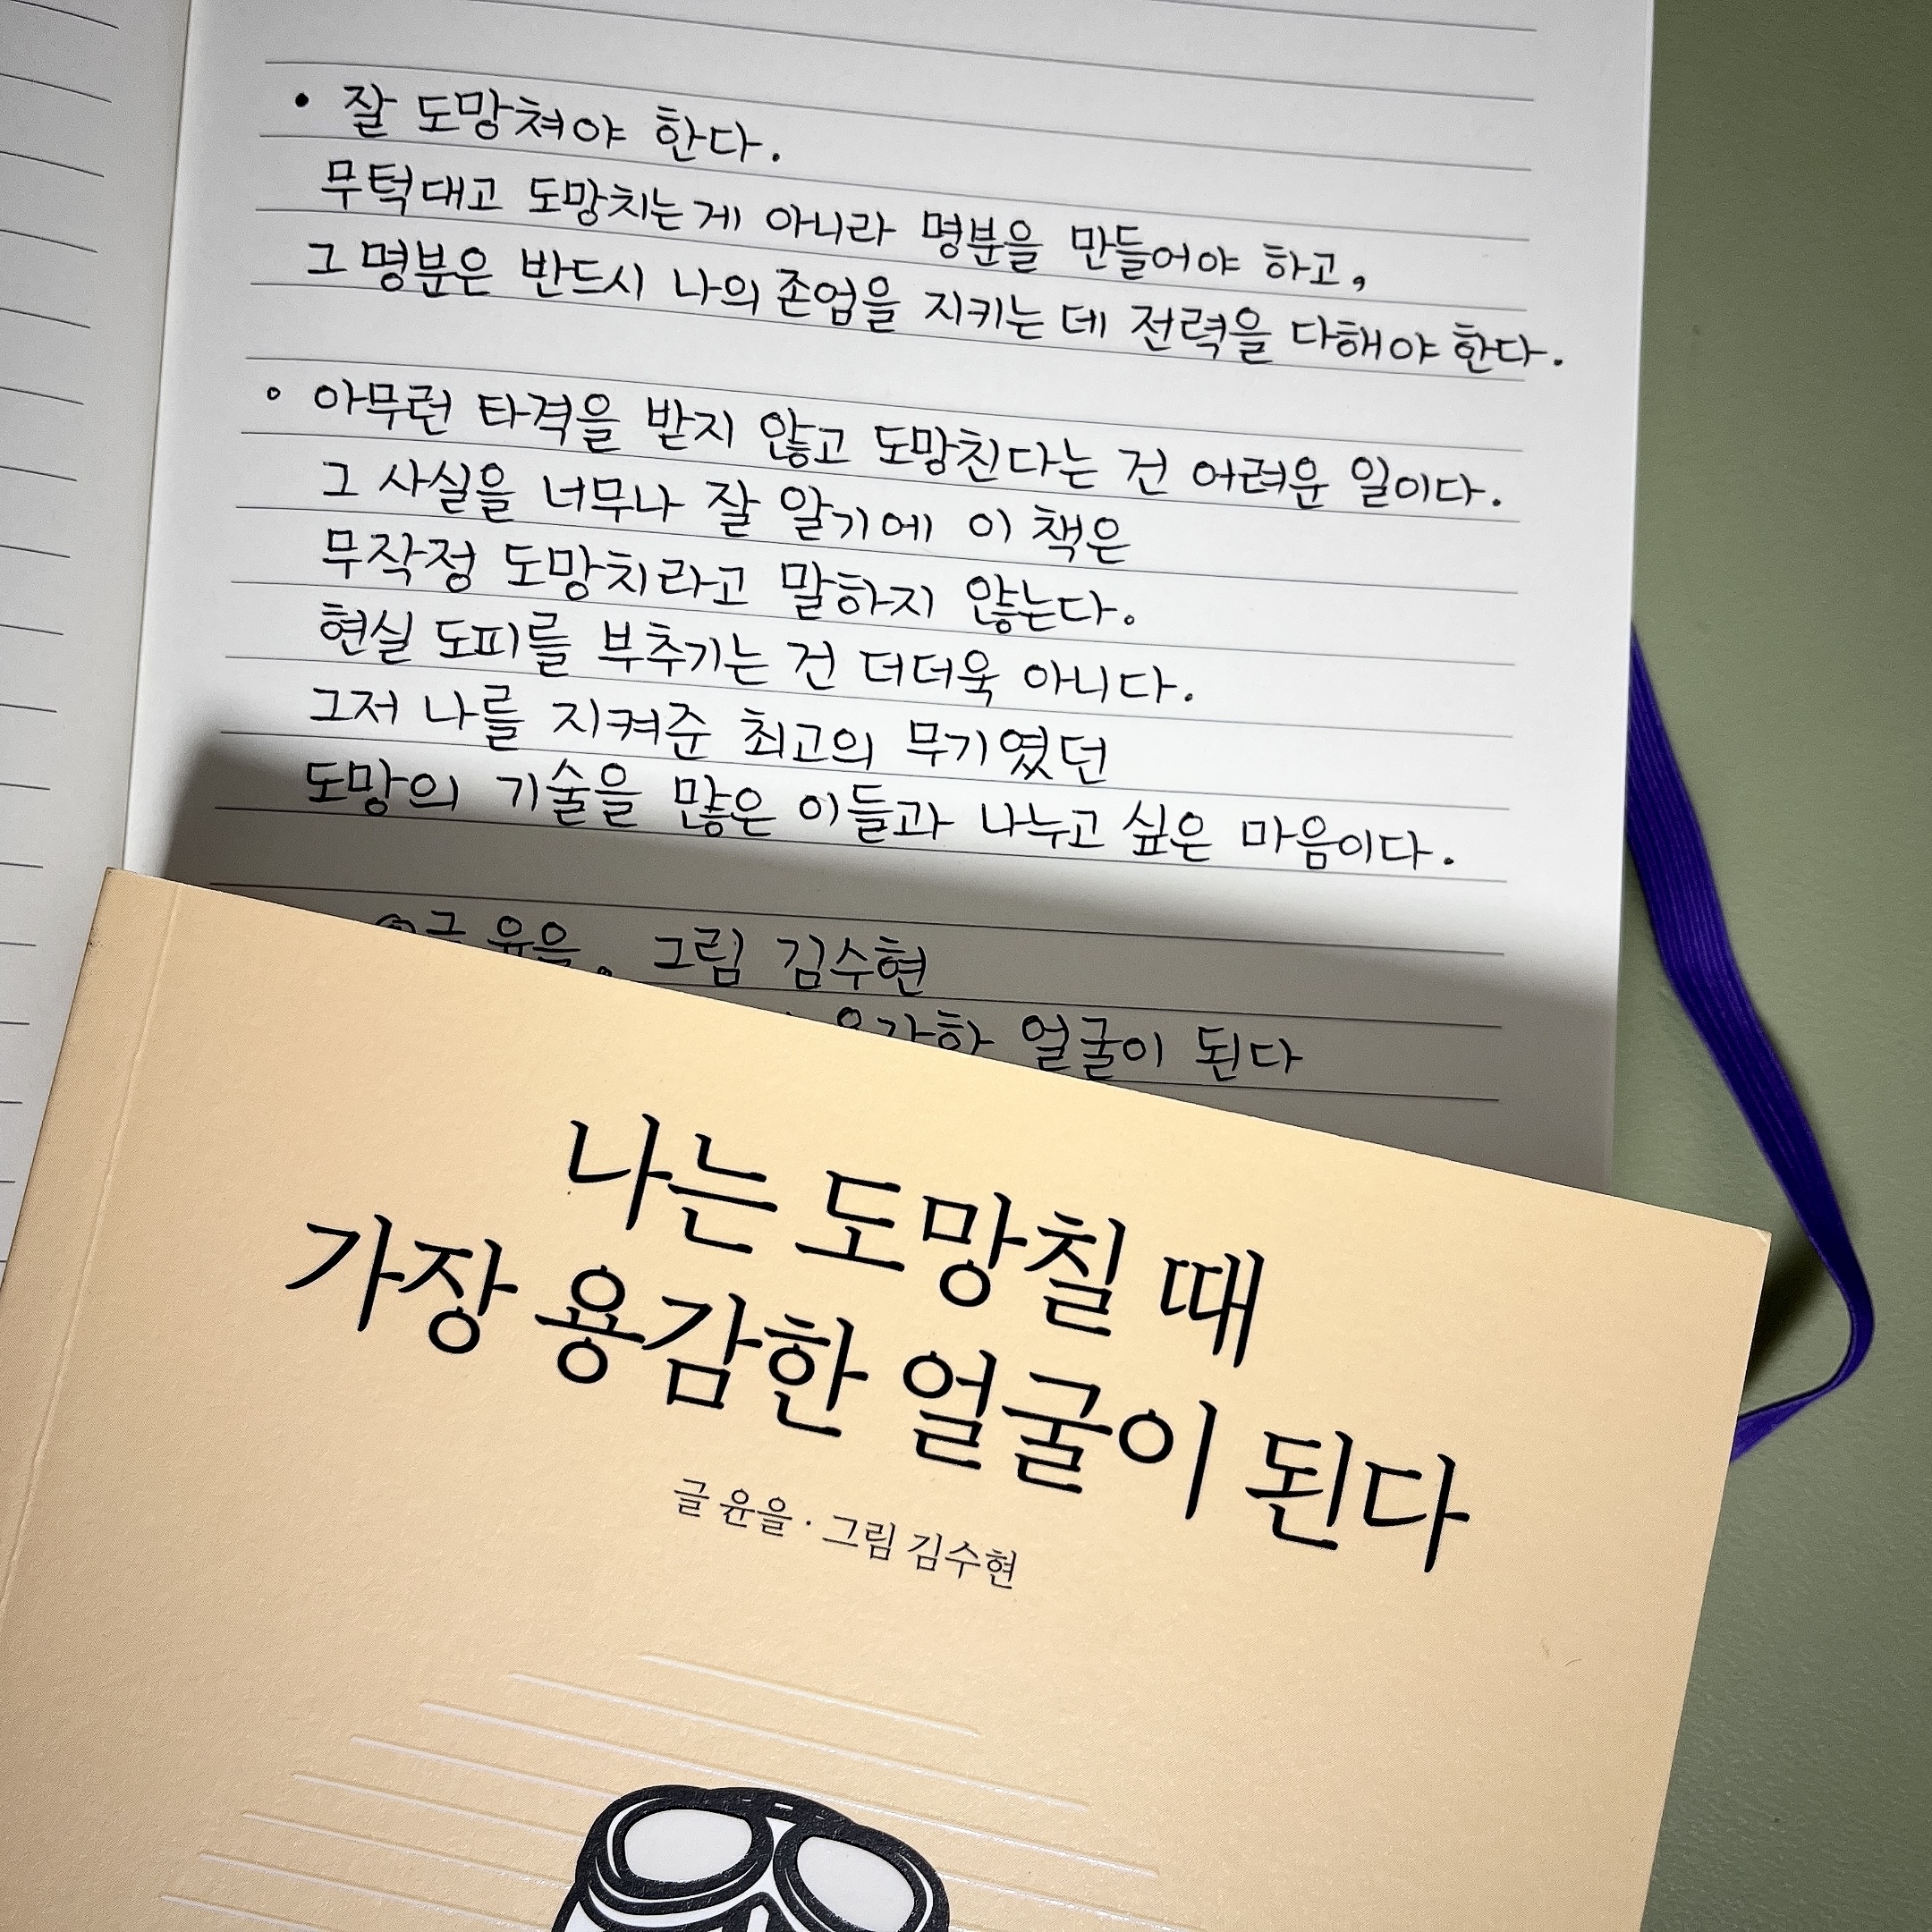 • 잘 도망쳐야 한다.
무턱대고 도망치는게 아니라 명분을 만들어야 하고,
그 명분은 반드시 나의 존엄을 지키는 데 전력을 다해야 한다.
◦ 아무런 타격을 받지 않고 도망친다는 건 어려운 일이다.
그 사실을 너무나 잘 알기에 이 책은
무작정 도망치라고 말하지 않는다.
현실 도피를 부추기는 건 더더욱 아니다.
그저 나를 지켜준 최고의 무기였던
도망의 기술을 많은 이들과 나누고 싶은 마음이다.
글 윤을. 그림 김수현
용감한 얼굴이 된다
나는 도망칠 때
가장 용감한 얼굴이 된다
글 윤을 · 그림 김수현